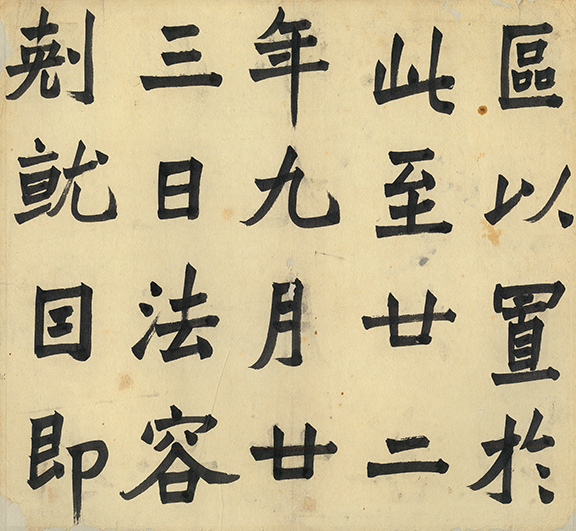 區以置於
此至廿二
年九月廿
三日法容
剋就囙即